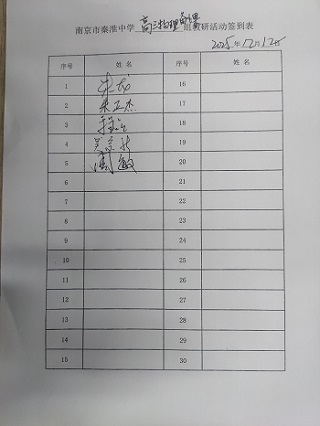 南京市秦淮中学 高三物理备课 组教研活动签到表
2025年12月12日
序号 姓名 序号 姓名
1 朱龙 16
2 朱正杰 17
3 18
4 19
5 周敏 20
6 21
7 22
8 23
9 24
10 25
11 26
12 27
13 28
14 29
15 30